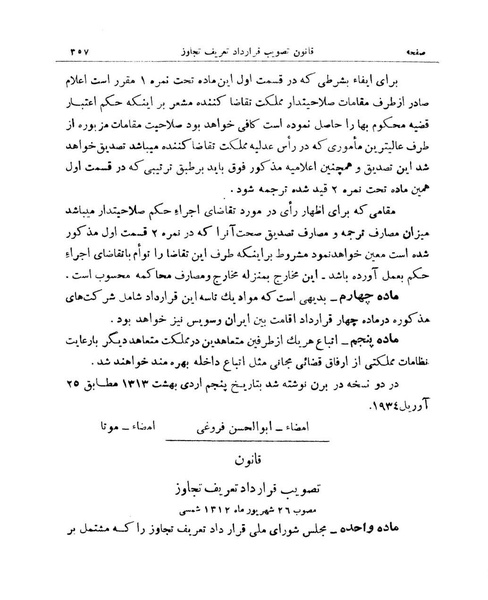 صفحه قانون تصویب قرارداد تعریف تجاوز ۳۵۷
برای ایفاء بشرطی که در قسمت اول این ماده تحت نمره ۱ مقرر است اعلام
صادر ازطرف مقامات صلاحیتدار مملکت تقاضا کننده مشعر براینکه حکم اعتبار
قضیه محکوم بها را حاصل نموده است کافی خواهد بود صلاحیت مقامات مزبوره از
طرف عالیترین مأموری که در رأس عدلیه مملکت تقاضا کننده میباشد تصدیق خواهد
شد این تصدیق و همچنین اعلامیه مذکور فوق باید برطبق ترتیبی که در قسمت اول
همین ماده تحت نمره ۲ قید شده ترجمه شود .
مقامی که برای اظهار رأی در مورد تقاضای اجراء حکم صلاحیتدار میباشد
میزان مصارف ترجمه و مصارف تصدیق صحت آنرا که در نمره ۲ قسمت اول مذکور
شده است معین خواهدنمود مشروط براینکه طرف این تقاضا را توأم باتقاضای اجراء
حکم بعمل آورده باشد ـ این مخارج بمنزله مخارج ومصارف محاکمه محسوب است .
ماده چهارم ـ بدیهی است که مواد یك تاسه این قرارداد شامل شرکت‌های
مذکوره درماده چهار قرارداد اقامت بین ایران وسویس نیز خواهد بود .
ماده پنجم ـ اتباع هریك ازطرفین متعاهدین درمملکت متعاهد دیگر بارعایت
نظامات مملکتی از ارفاق قضائی مجانی مثل اتباع داخله بهره مند خواهند شد .
در دو نسخه در برن نوشته شد بتاریخ پنجم اردی بهشت ۱۳۱۳ مطابق ۲۵
آوریل ۱۹۳۴.
امضاء ـ ابوالحسن فروغی امضاء ـ موتا
قانون
تصویب قرارداد تعریف تجاوز
مصوب ۲۶ شهریور ماه ۱۳۱۲ شمسی
ماده واحده ـ مجلس شورای ملی قرار داد تعریف تجاوز را که مشتمل بر